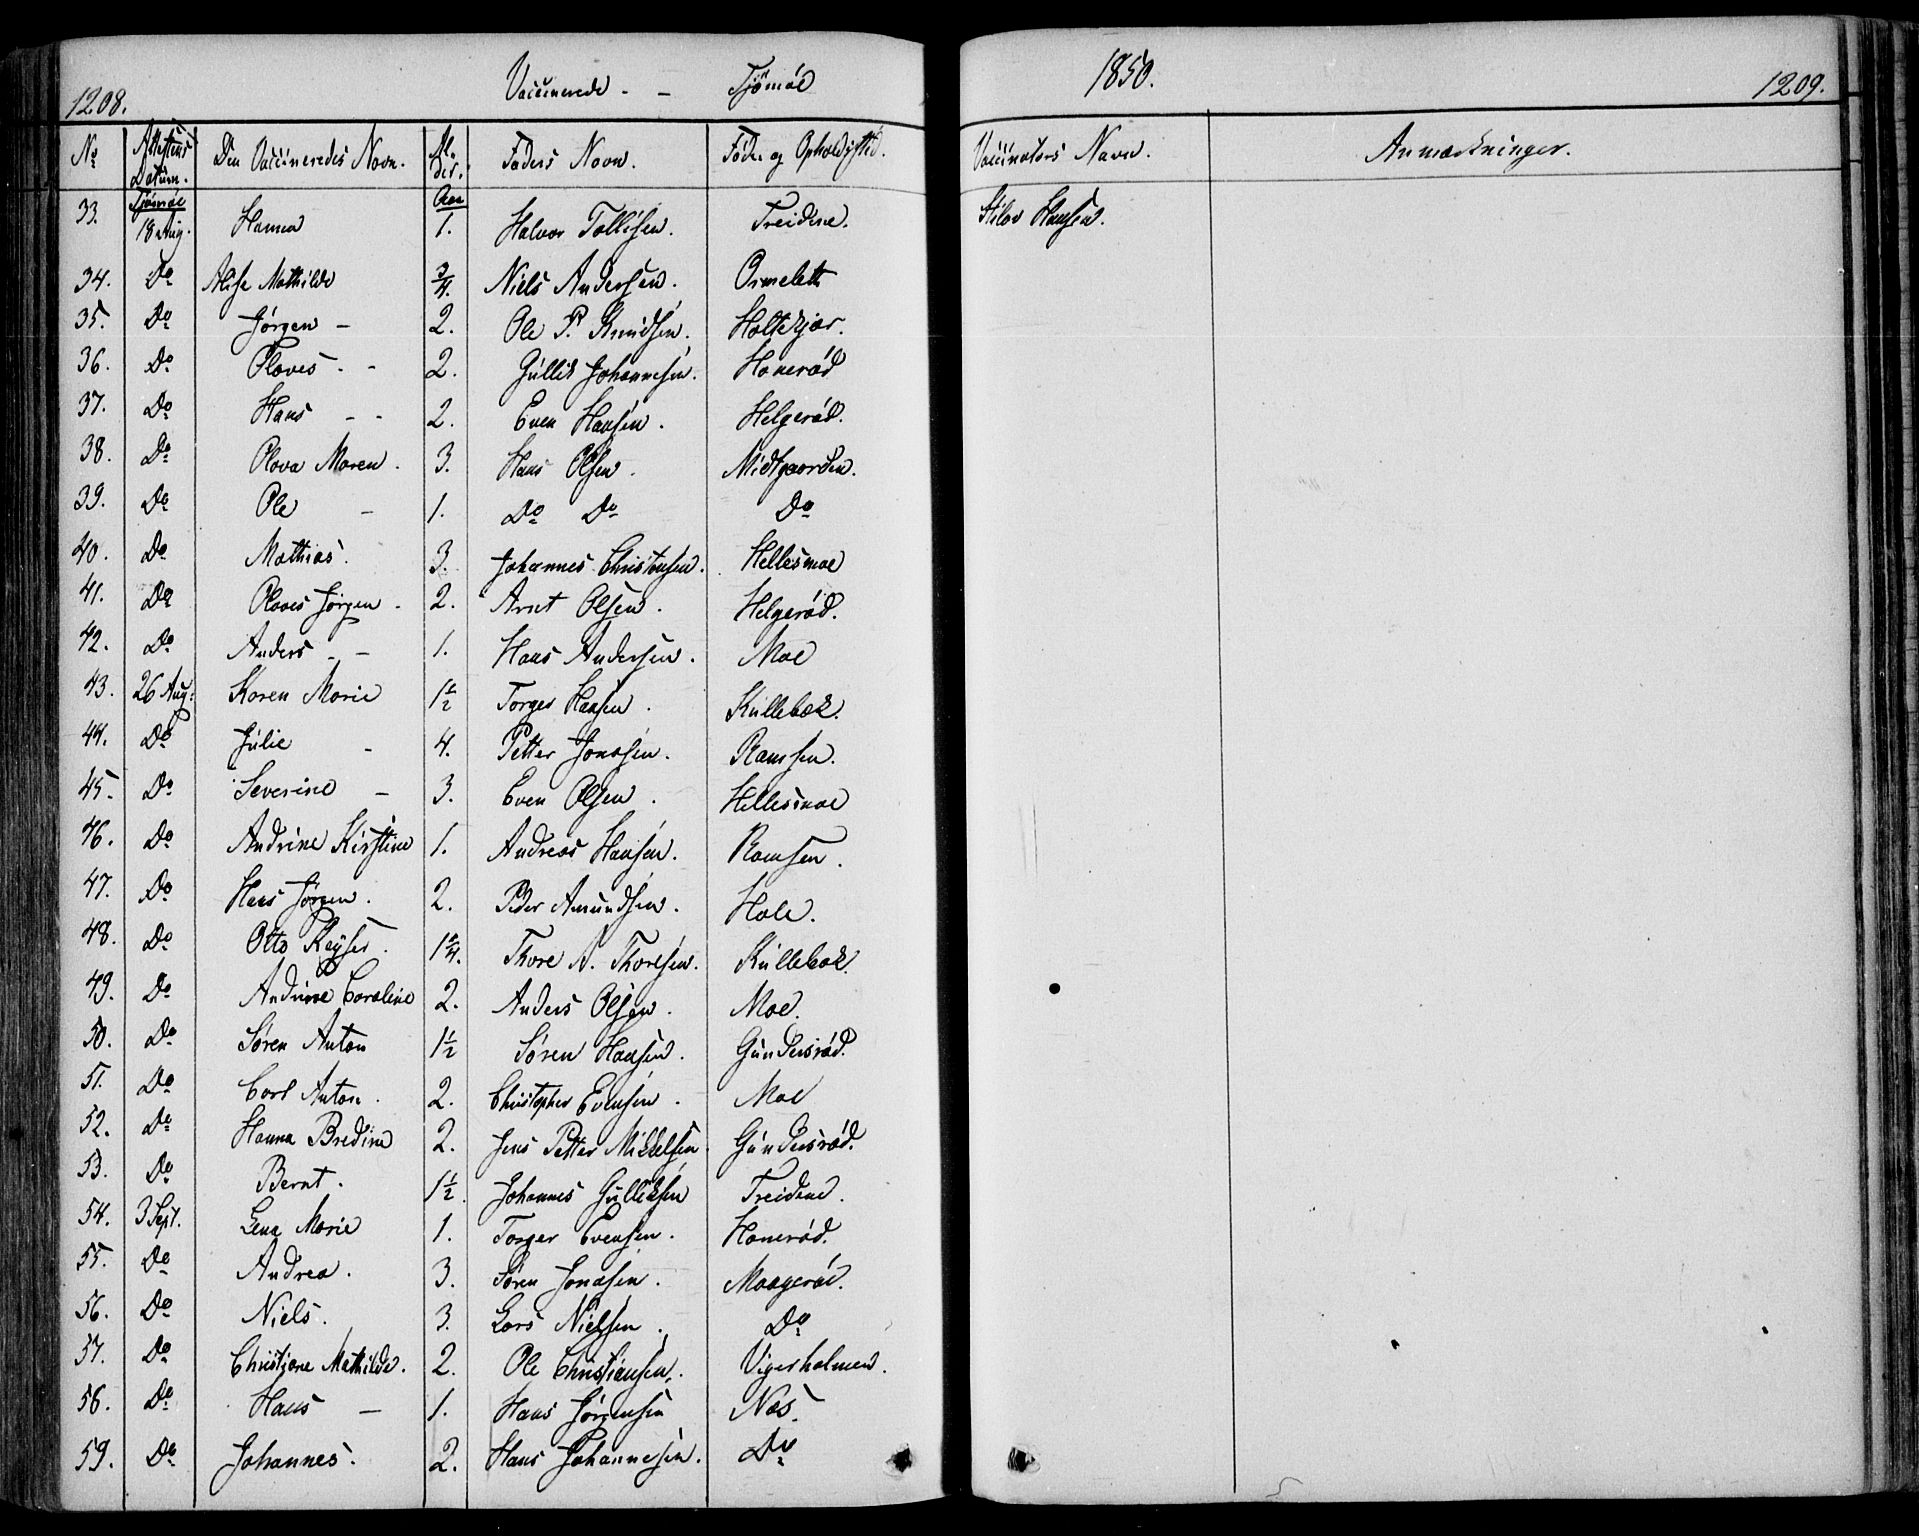 1208.
Vaccinerede - - Tjömöe
1850.
1209.
No Attestens Datum. Den Vaccineredes Navn. Al-der. Faders Navn. Føde og Opholdssted. Vaccinators Navn. Anmærkninger.
33. Tjömöe 18 Aug. Hanna Aar 1. Halvor Tollefsen. Treidene. Hansen.
34. Do Mathilde 3/4. Niels Andersen. Ormelett
35. Do Jørgen - 2. Ole P. Knudsen. Holtekjær.
36. Do Olaves - - 2. Gullik Johannesen. Honerød
37. Do Hans - - 2. Even Hansen. Helgerød.
38. Do Olava Maren. 3. Hans Olsen. Midtgaarden.
39. Do Ole - 1. Do Do Do
40. Do Mathias. 3. Johannes Christensen. Hellesmoe
41. Do Olaves Jørgen. 2. Arnt Olsen. Helgerød.
42. Do Anders - - 1. Hans Andersen. Moe
43. 26 Aug: Karen Marie 1 1/2 Torger Hansen. Kullebæk.
44. Do Julie - 4. Petter Jonasen. Ramsen.
45. Do Severine - 3. Even Olsen. Hellesmoe
46. Do Andrine Kirstine 1. Andreas Hansen. Ramsen.
47. Do Hans Jørgen. 2. Peder Amundsen. Hole.
48. Do Otto Keyser. 1 1/4. Thore N. Thoresen. Kullebæk.
49. Do Andrine Caroline 2. Anders Olsen. Moe.
50. Do Søren Anton 1 1/2 Søren Hansen. Gundersrød.
51. Do Carl Anton. 2. Christopher Evensen. Moe
52. Do Hanna Bredine 2. Jens Petter Mikkelsen. Gundersrød.
53. Do Bernt. 1 1/2. Johannes Gulliksen Treidene.
54. 3 Sept. Lena Marie 1. Torger Evensen. Honerød.
55. Do Andrea. 3. Søren Jonasen. Maagerøe.
56. Do Niels. 3. Lars Nielsen. Do
57. Do Christiane Mathilde. 2. Ole Christiansen. Vigerholmen.
56. Do Hans - 1. Hans Jørgensen Næs.
59. Do Johannes. 2. Hans Johannesen. Do